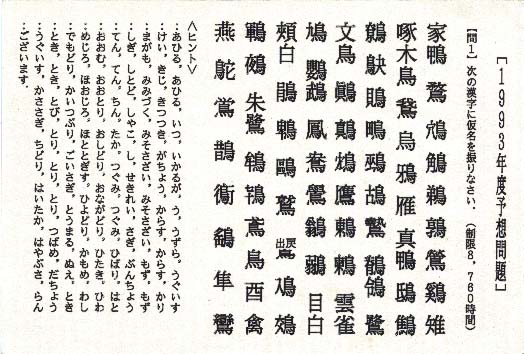 [1993年度予想問題]
[問1] 次の漢字に仮名を振りなさい。 (制限8,760時間)
家鴨 鶩 鵤 鵜 鶉 鶯 鷄 雉
啄木鳥 鵞 烏 鴉 雁 真鴨 鴟 鷦
鷯 鴃 鵙 鴫 鵐 鴣 鷙 鶺鴒 鷺
文鳥 鷏 鷆 鴆 鷹 鶫 鶇 雲雀
鳩 鸚鵡 鳳 鴦 鴛 鶲 鶸 目白
頬白 鵑 鵯 鷗 鷲 出戻鳥
鵺 朱鷺 鴾 鴇 鳶 鳥 酉 禽
燕 鴕 鵲 鵆 鷂 隼 鸞
＜ヒント＞
…あひる、あひる、いつ、いかるが、う、うずら、うぐいす
…けい、きじ、きつつき、がちょう、からす、からす、かり
…まがも、みみづく、みそさざい、みそさざい、もず、もず
…しぎ、しとど、しゃこ、し、せきれい、さぎ、ぶんちょう
…てん、てん、ちん、たか、つぐみ、つぐみ、ひばり、はと
…おおむ、おおとり、おしどり、おながどり、ひたき、ひわ
…めじろ、ほおじろ、ほととぎす、ひよどり、かもめ、わし
…でもどり、かいつぶり、ごいさぎ、とうまる、ぬえ、とき
…とき、とき、とび、とり、とり、とり、つばめ、だちょう
…うぐいす、かささぎ、ちどり、はいたか、はやぶさ、らん
…ございます。